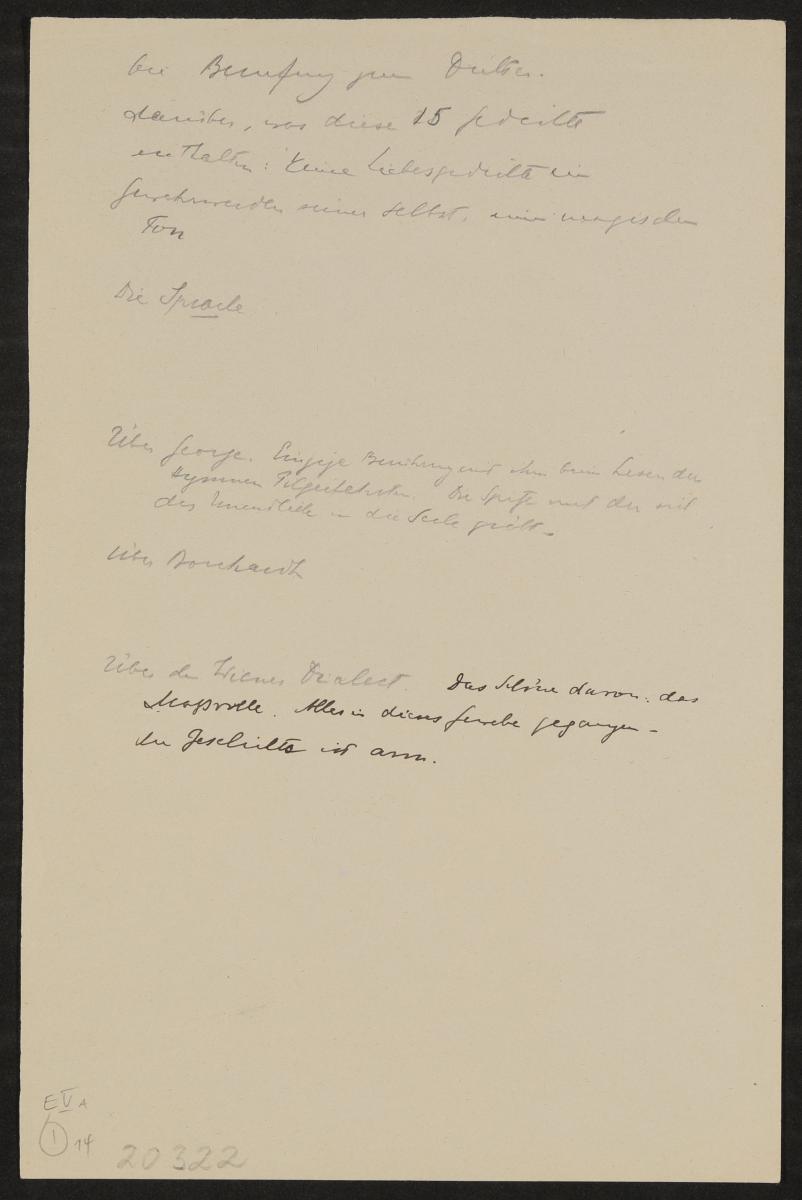 bei Berufung zum Dichter.
darüber, was diese 15 Gedichte
enthalten: keine Liebesgedichte ein
Gewahrwerden seiner selbst, einen magischen
Ton
Die Sprache
Über George. Einzige Berührung mit ihm beim Lesen der
Hymnen Pilgerfahrten. Die
des in die Seele
Über Borchardt
Über den Wiener Dialect. Das Schöne daran: das
Maßvolle. Alles in dieses Gewebe gegangen –
die Geschichte ist arm.
E V A
1 14
20322